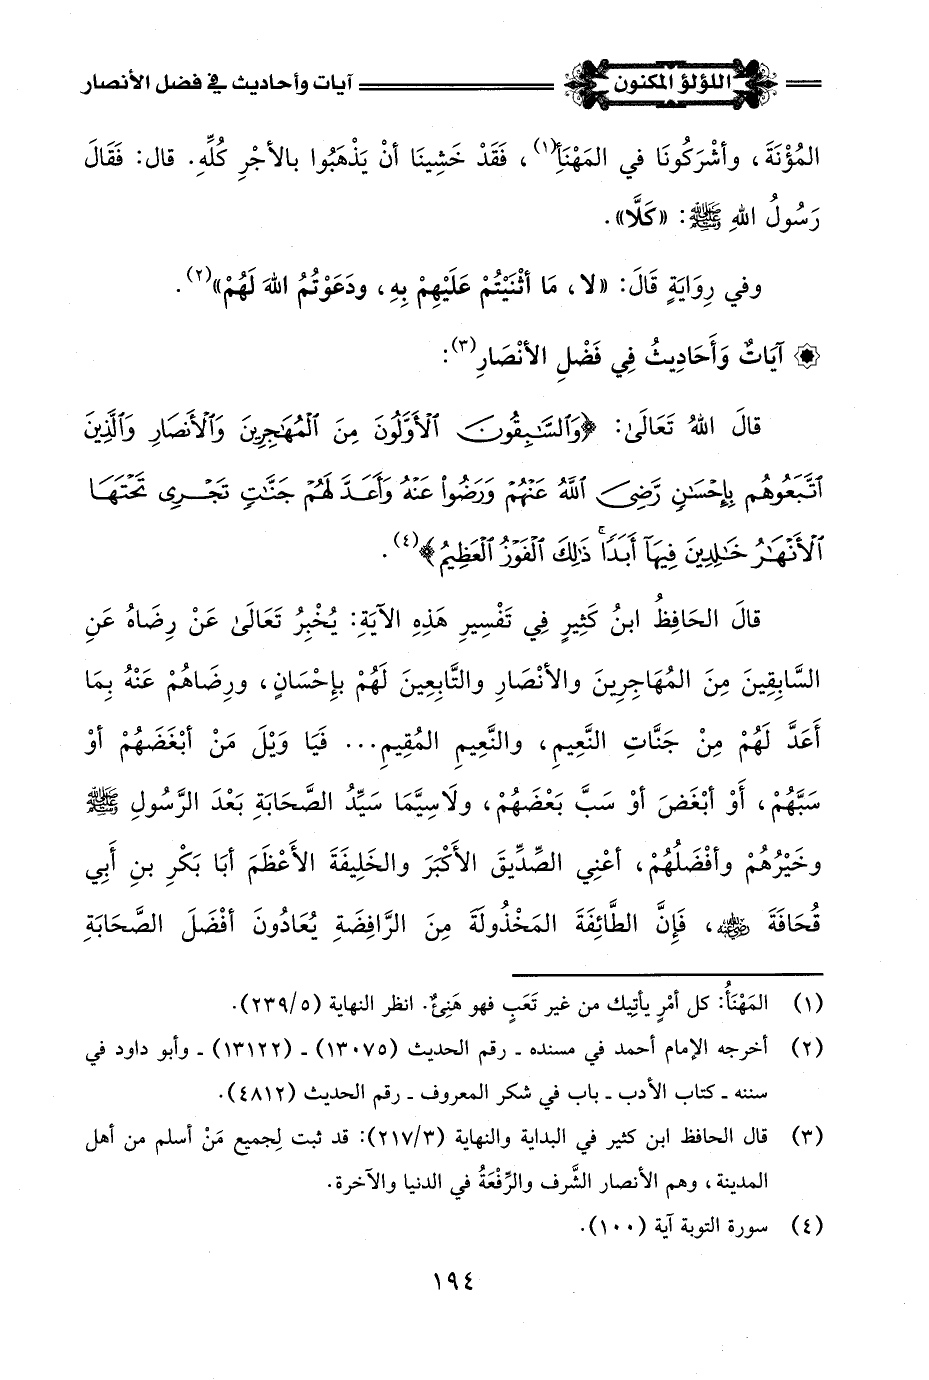 اللؤلؤ المكنون آيات وأحاديث في فضل الأنصار
المُؤْنَةَ، وأَشْرَكُونَا في المَهْنَأِ(١)، فَقَدْ خَشِينَا أنْ يَذْهَبُوا بالأجْرِ كُلِّهِ. قال: فَقَالَ
رَسُولُ اللهِ ﷺ: «كَلَّا».
وفي رِوَايَةٍ قَالَ: «لا، مَا أثْنَيْتُمْ عَلَيْهِمْ بِهِ، ودَعَوْتُمُ اللهَ لَهُمْ»(٢).
۞ آيَاتٌ وَأَحَادِيثُ فِي فَضْلِ الأنْصَارِ(٣):
قالَ اللهُ تَعَالَى: ﴿وَٱلسَّٰبِقُونَ ٱلْأَوَّلُونَ مِنَ ٱلْمُهَٰجِرِينَ وَٱلْأَنصَارِ وَٱلَّذِينَ
ٱتَّبَعُوهُم بِإِحْسَٰنٍ رَّضِىَ ٱللَّهُ عَنْهُمْ وَرَضُوا۟ عَنْهُ وَأَعَدَّ لَهُمْ جَنَّٰتٍ تَجْرِى تَحْتَهَا
ٱلْأَنْهَٰرُ خَٰلِدِينَ فِيهَآ أَبَدًا ۚ ذَٰلِكَ ٱلْفَوْزُ ٱلْعَظِيمُ﴾(٤).
قالَ الحَافِظُ ابنُ كَثِيرٍ فِي تَفْسِيرِ هَذِهِ الآيَةِ: يُخْبِرُ تَعَالَى عَنْ رِضَاهُ عَنِ
السَّابِقِينَ مِنَ المُهَاجِرِينَ والأنْصَارِ والتَّابِعِينَ لَهُمْ بإِحْسَانٍ، ورِضَاهُمْ عَنْهُ بِمَا
أَعَدَّ لَهُمْ مِنْ جَنَّاتِ النَّعِيمِ، والنَّعِيمِ المُقِيمِ... فَيَا وَيْلَ مَنْ أبْغَضَهُمْ أوْ
سَبَّهُمْ، أَوْ أبْغَضَ أوْ سَبَّ بَعْضَهُمْ، ولَاسِيَّمَا سَيِّدُ الصَّحَابَةِ بَعْدَ الرَّسُولِ ﷺ
وخَيْرُهُمْ وأفْضَلُهُمْ، أعْنِي الصِّدِّيقَ الأكْبَرَ والخَلِيفَةَ الأعْظَمَ أبَا بَكْرِ بنِ أَبِي
قُحَافَةَ رضي الله عنه، فَإِنَّ الطَّائِفَةَ المَخْذُولَةَ مِنَ الرَّافِضَةِ يُعَادُونَ أفْضَلَ الصَّحَابَةِ
(١) المَهْنَأُ: كل أمْرٍ يأتِيك من غير تَعَبٍ فهو هَنِئٌ. انظر النهاية (٢٣٩/٥).
(٢) أخرجه الإمام أحمد في مسنده ـ رقم الحديث (١٣٠٧٥) ـ (١٣١٢٢) ـ وأبو داود في
سننه ـ كتاب الأدب ـ باب في شكر المعروف ـ رقم الحديث (٤٨١٢).
(٣) قال الحافظ ابن كثير في البداية والنهاية (٢١٧/٣): قد ثبت لِجميع مَنْ أسلم من أهل
المدينة، وهم الأنصار الشَّرف والرِّفْعَةُ في الدنيا والآخرة.
(٤) سورة التوبة آية (١٠٠).
١٩٤